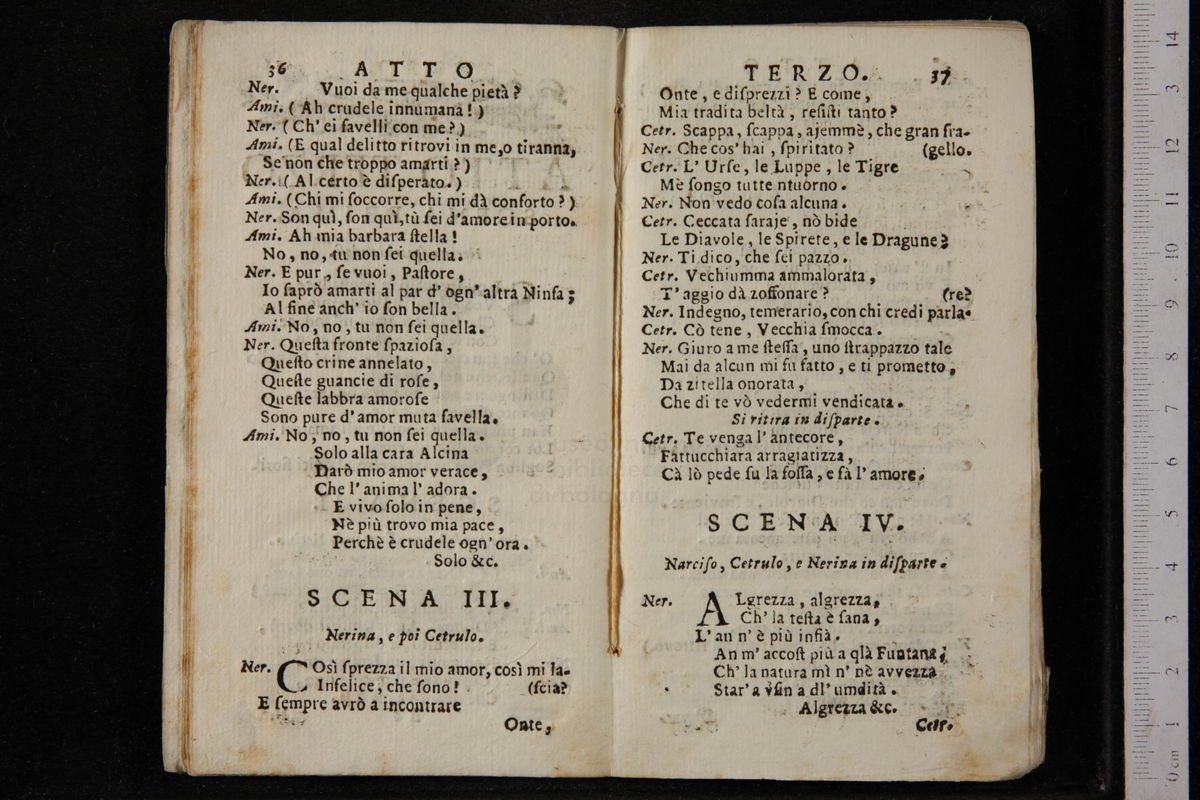 36 ATTO
Ner. Vuoi da me qualche pietà?
Ami. (Ah crudele innumana!)
Ner. (Ch' ei favelli con me?)
Ami. (E qual delitto ritrovi in me, o tiranna,
Se non che troppo amarti?)
Ner. (Al certo è diſperato.)
Ami. (Chi mi ſoccorre, chi mi dà conforto?)
Ner. Son quì, ſon quì, tù ſei d'amore in porto.
Ami. Ah mia barbara ſtella!
No, no, tu non ſei quella.
Ner. E pur, ſe vuoi, Paſtore,
Io ſaprò amarti al par d' ogn' altra Ninfa;
Al fine anch' io ſon bella.
Ami. No, no, tu non ſei quella.
Ner. Queſta fronte ſpazioſa,
Queſto crine annelato,
Queſte guancie di roſe,
Queſte labbra amoroſe
Sono pure d' amor muta favella.
Ami. No, no, tu non ſei quella.
Solo alla cara Alcina
Darò mio amor verace,
Che l' anima l' adora.
E vivo ſolo in pene,
Nè più trovo mia pace,
Perchè è crudele ogn' ora.
Solo &c.
SCENA III.
Nerina, e poi Cetrulo.
Ner. COsì ſprezza il mio amor, così mi la-
Infelice, che ſono! (ſcia?
E ſempre avrò a incontrare
Onte,
TERZO. 37
Onte, e diſprezzi? E come,
Mia tradita beltà, reſiſti tanto?
Cetr. Scappa, ſcappa, ajemmè, che gran fra-
Ner. Che cos' hai, ſpiritato? (gello.
Cetr. L' Urſe, le Luppe, le Tigre
Mè ſongo tutte ntuorno.
Ner. Non vedo coſa alcuna.
Cetr. Ceccata ſaraje, nò bide
Le Diavole, le Spirete, e le Dragune?
Ner. Ti dico, che ſei pazzo.
Cetr. Vechiumma ammalorata,
T' aggio dà zoffonare? (re?
Ner. Indegno, temerario, con chi credi parla-
Cetr. Cò tene, Vecchia ſmocca.
Ner. Giuro a me ſteſſa, uno ſtrappazzo tale
Mai da alcun mi fu fatto, e ti prometto,
Da zitella onorata,
Che di te vò vedermi vendicata.
Si ritira in diſparte.
Cetr. Te venga l' antecore,
Fattucchiara arragiatizza,
Cà lò pede ſu la foſſa, e fà l' amore.
SCENA IV.
Narciſo, Cetrulo, e Nerina in diſparte.
Ner. ALgrezza, algrezza,
Ch' la teſta è ſana,
L' an n' è più inſià.
An m' accoſt più a qlà Funtana;
Ch' la natura mì n' nè avvezza
Star' a vſin a dl' umdità.
Algrezza &c.
Cetr.